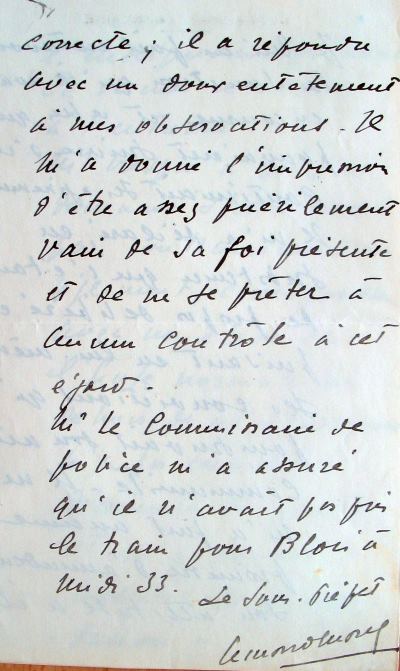 correcte ; il a répondu
avec un doux entêtement
à mes observations. Il
m'a donné l'impression
d'être assez puérilement
vain de sa foi présente
et de ne se prêter à
aucun contrôle à cet
égard.
Mr le Commissaire de
police m'a assuré
qu'il n'avait pas pris
le train pour Blois à
midi 33.
Le Sous-Préfet